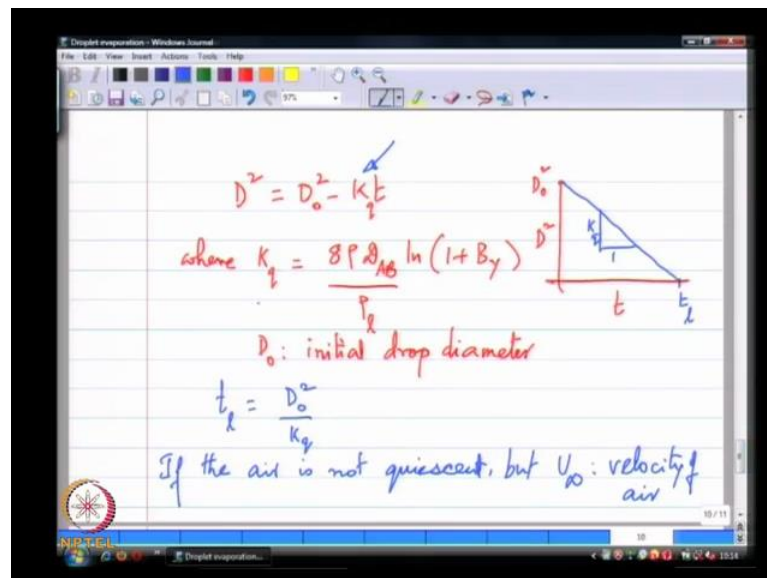 Droplet evaporation - Windows Journal
File Edit View Insert Actions Tools Help
B I
97%
D² = D₀² - K_q t
where K_q = 8 ρ 𝒟_AB / ρ_l ln (1 + B_y)
D₀ : initial drop diameter
t_l = D₀² / K_q
If the air is not quiescent, but U_∞ : velocity of
air
D₀²
D²
K_q
1
t
t_l
10 / 11
10
NPTEL
Droplet evaporation...
1014